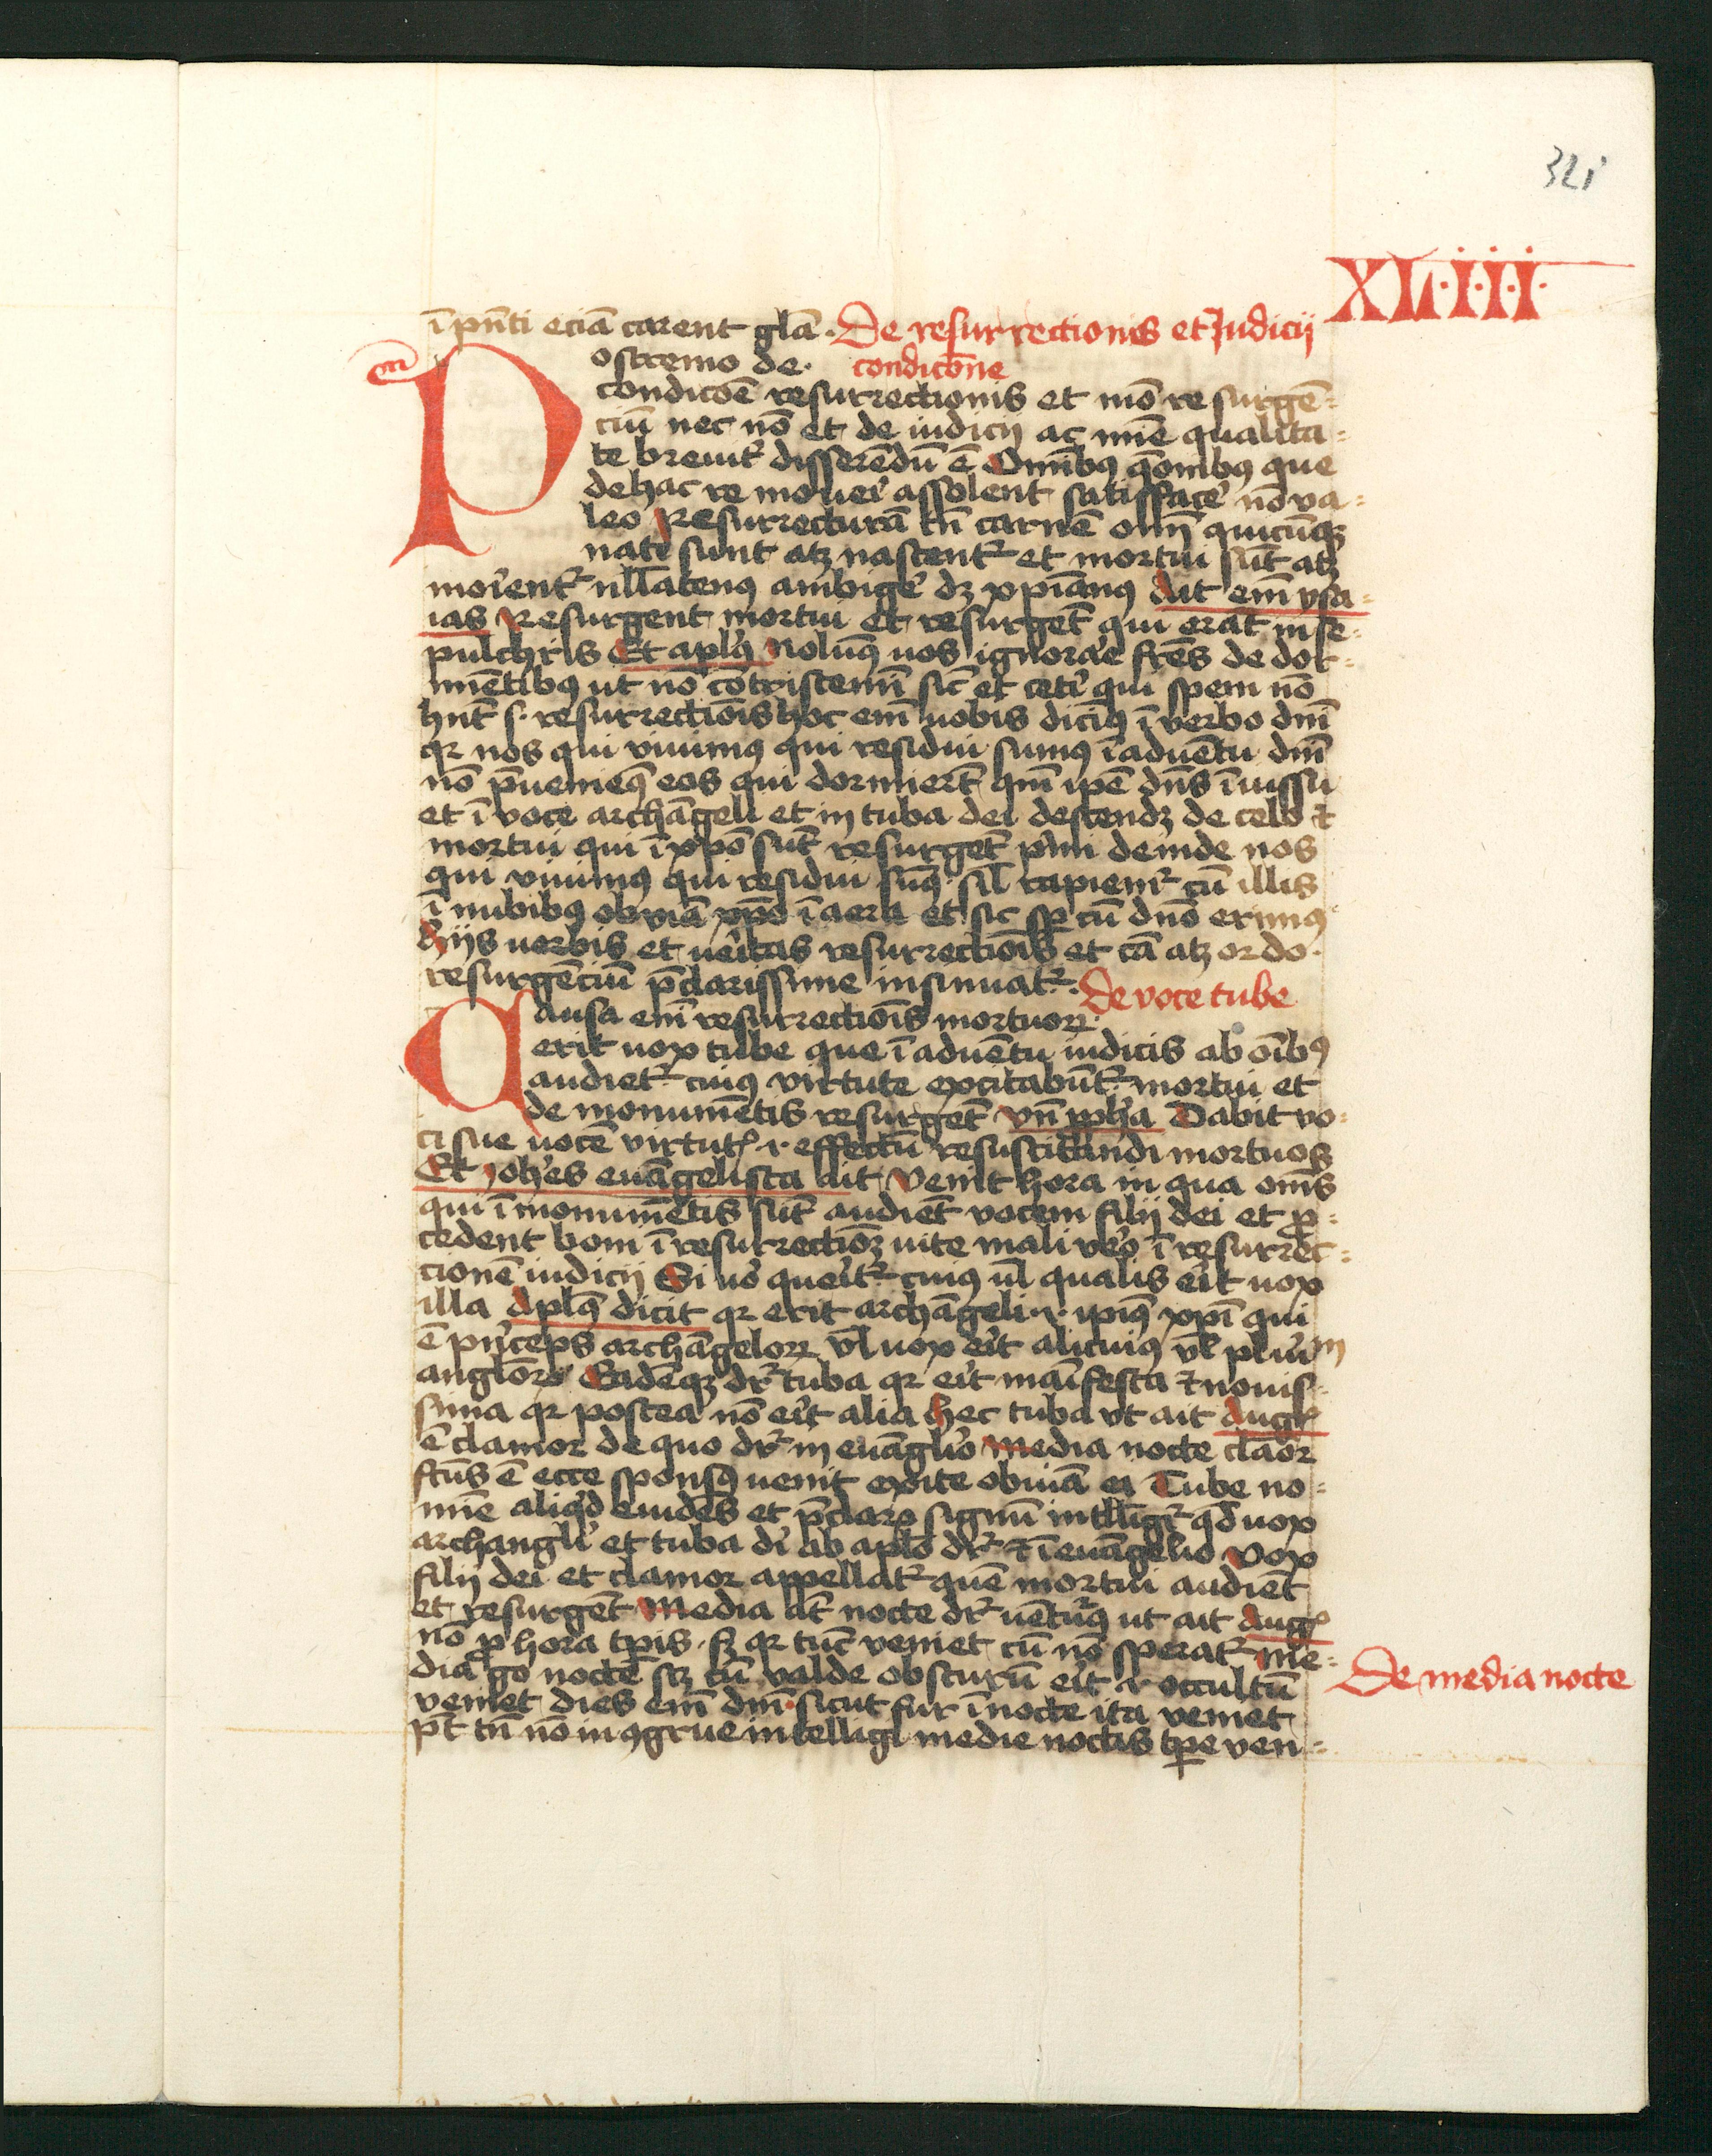 321
XL·I·I·I·
ī pn̄ti eciā carent glā · De resurrectionis et Judicij
Postremo de · condicōne
condicōe resurrectionis et mō resurgē=
ciū nec nō et de iudicij ac mīe qualita=
te breuit᷑ disserēdū ē Omībꝫ q̄onibꝫ que
de hac re moueri assolent satisfacē nō va=
leo Resurrecturā tn̄ carnē oīm quicūqꝫ
nati sunt atꝫ nascent᷑ et mortui sūt atꝫ
morient᷑ nllatenꝰ ambigē dꝫ xpianꝰ Ait em̄ ysa=
ias Resurgent mortui et resurgēt qui erāt in se=
pulchris Et aplꝰ Nolumꝰ uos ignorāe frēs de dor=
mientibꝫ ut nō cōtristemī sic et ceti qui spem nō
hn̄t s· resurrectiōis hoc em̄ uobis dicimꝰ ī verbo dn̄i
qr nos qui viuimꝰ qui residui sumꝰ ī aduētu dn̄i
nō p̄ueniemꝰ eos qui dormierūt qm̄ ipē dn̄s ī iussu
et ī voce archāgeli et in tuba dei descendꝫ de celo ⁊
mortui qui ī xpō sūt resurgēt pͥmi deinde nos
qui viuimꝰ qui residui sumꝰ sil̄ rapiem᷑ cū illis
ī nubibꝫ obuiā xpō ī aera et sic sp̄ cū dn̄o erimꝰ
Hiis uerbis et uēitas resurrectiōis et cā atꝫ ordo ·
resurgēciū p̄clarissime insinuat᷑ · De voce tube
Causa em̄ resurrectiōis mortuoꝝ ·
erit uox tube que ī aduētu iudicis ab oībꝫ
audiet᷑ cuiꝰ virtute excitabūt᷑ mortui et
de monumētis resurgēt vn̄ ꝓpha Dabit uo=
ci sue uocē virtutꝭ ·i· effectū resuscitandi mortuos
Et Johēs euāgelista ait Venit hora in qua om̄s
qui ī monumētis sūt audiēt vocem filij dei et ꝓ=
cedent boni ī resurrectiōꝫ uite mali vēo ī resurrec=
tionē iudicij Si uō querit᷑ cuiꝰ ul̄ qualis eīt uox
illa Aplꝰ dicit qr erit archāgeli ·i· ipiꝰ xpī qui
ē pͥnceps archāgeloꝝ vl̄ uox eīt alicuiꝰ vl̄ pluriū
angloꝝ Eadēqꝫ dr᷑ tuba qr eīt maīfesta ⁊ nouis=
sima qr postea nō eīt alia hec tuba ut ait Augꝰ
ē clamor de quo dr᷑ in euāglio Media nocte clāor
fcūs ē ecce sponsꝰ uenit exite obuiā ei Tube no=
mīe aliqͥd euidēs et p̄claꝝ signū intlligit᷑ qd̄ uox
archangli et tuba di ab aplo dr᷑ ⁊ ī euāgelio Vox
filij dei et clamor appellat᷑ quē mortui audiēt
et resurgēt Media āt nocte dr᷑ uētuꝝꝰ ut ait Augꝰ
nō ꝓ hora tp̄is sꝫ qr tūc veniet cū nō sperat᷑ Me=
dia gͦ nocte scꝫ cū valde obscurū eīt ·i· occultū De media nocte
veniet dies em̄ dn̄i sicut fur ī nocte ita veniet
pt̄ tn̄ nō incōgrue intelligi medie noctis tp̄e ven=